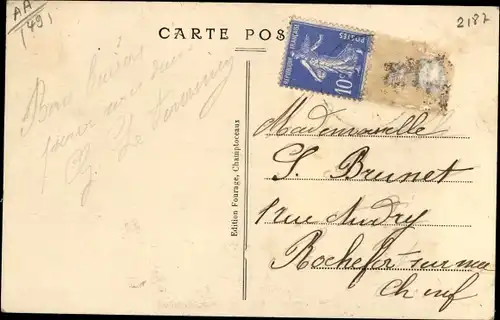 AA
(49)
2187
CARTE POS
REPUBLIQUE FRANÇAISE
POSTES
10c
Bons baisers
pour
Edition Fourage, Champtoceaux
Mademoiselle
S. Brunet
1 rue Audry
Rochefor-sur-mer
Ch inf